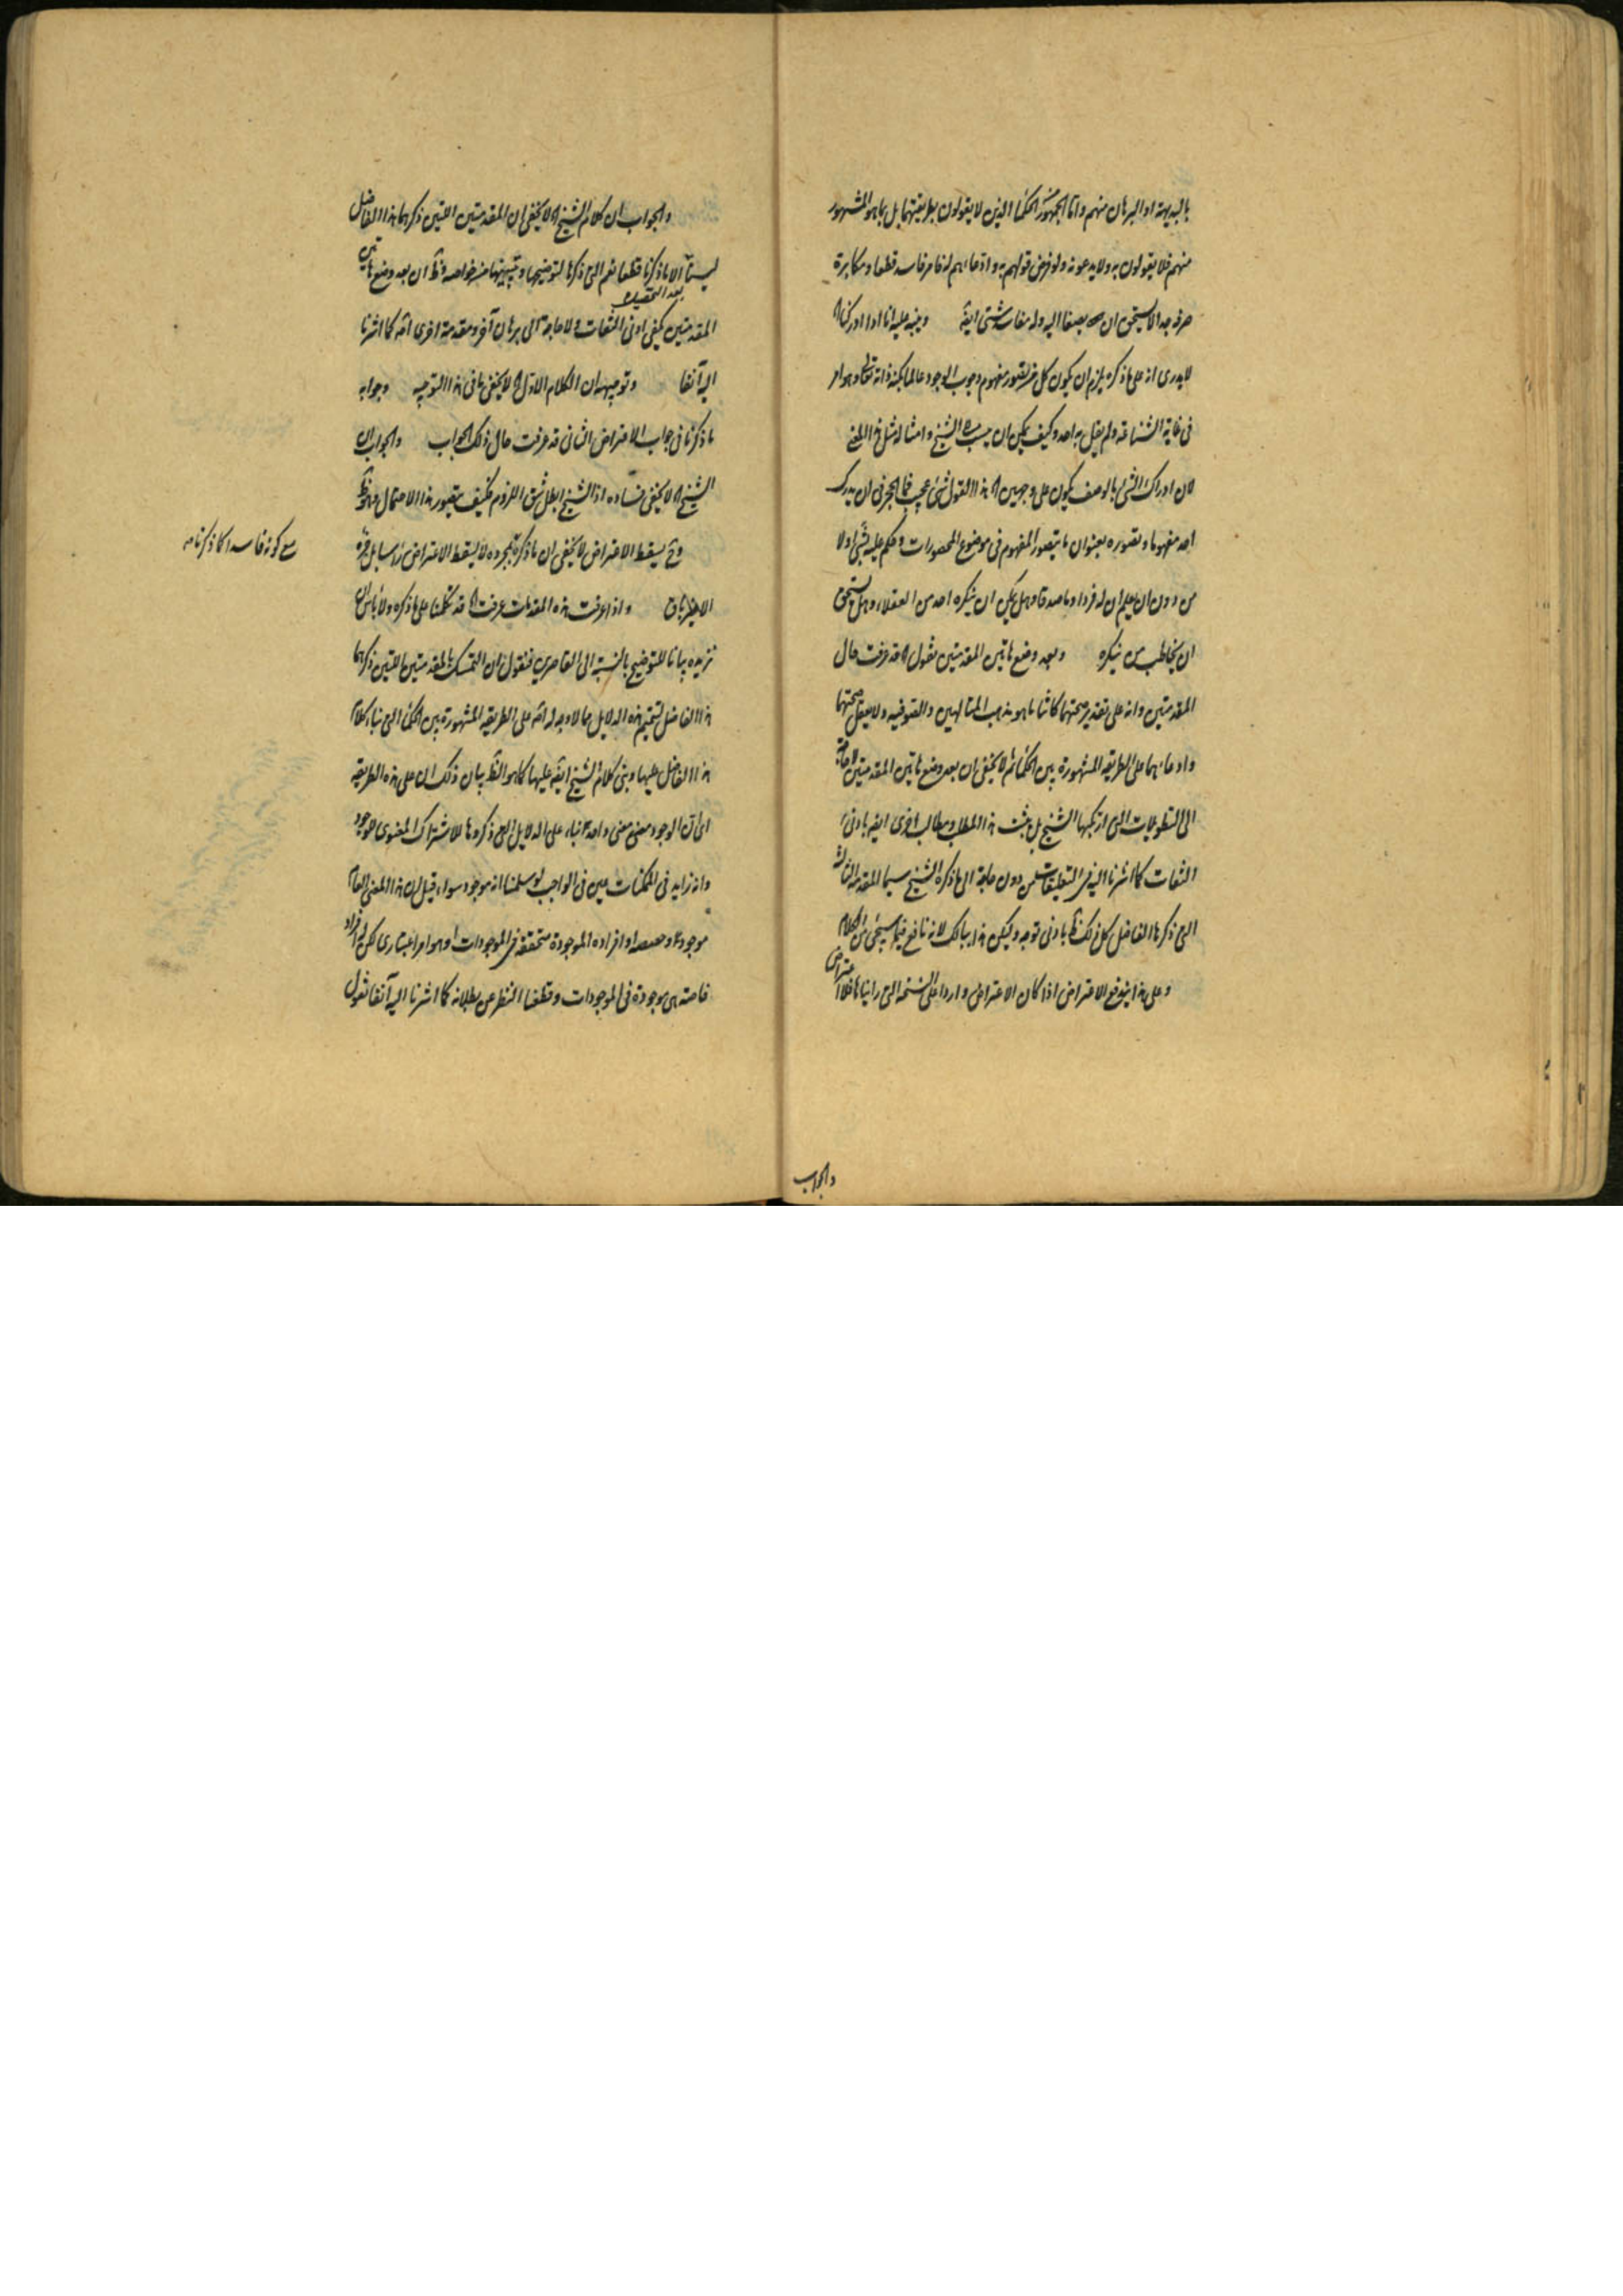 بالبديهة او البرهان منهم واما الجمهور الحكما الذين لا يقولون بطريقتهما بل بما هو المشهور
منهم فلا يقولون به ولا يدعونه ولو فرض قولهم به واذعانهم له فامر فاسد قطعا ومكابرة
صرفه جدا لا يستحق ان يصغا اليه وله مفاسد شتى ايضا وينبه عليه انا اذا ادركنا
لا يدرى انه على ما ذكره يلزم ان يكون كل من يتصور مفهوم وجوب الوجود عالما بكنه ذاته تعالى وهو امر
فى غاية الشناعة ولم يقل به احد وكيف يمكن ان ينسب الى الشيخ وامثاله مثل هذا المعنى
لان ادراك الشئ بالوصف يكون على وجهين هذا القول شئ عجيب فما الحجر فى ان يدرك
احد مفهوما وتصوره بعنوان ما يتصور المفهوم فى موضوع المحصورات وحكم عليه بشئ اولا
من دون ان يعلم ان له فردا وما صدقا وهل يمكن ان ينكره احد من العقلاء وهل يستحق
ان يخاطب من ينكره وبعد وضع هاتين المقدمتين نقول قد عرفت حال
المقدمتين وانه على تقدير صحتهما كانتا ما هو مذهب المتالهين والصوفيه ولا يعقل صحتهما
واذعانهما على الطريقة المشهورة بين الحكما ثم لا يخفى ان بعد وضع هاتين المقدمتين لا حاجة
الى التطويلات التى ارتكبها الشيخ بل يثبت هذا المطلب ومطالب اخرى ايضا بادنى
التفات كما اشرنا اليه فى التعليقات من دون حاجة الى ما ذكره الشيخ سيما المقدمة الثالثة
التى ذكرها الفاضل كل ذلك ظ بادنى توجه وليكن هذا ببالك لانه نافع فيما سيجئ من الكلام
وعلى هذا يندفع الاعتراض اذا كان الاعتراض واردا على النسخة التى رايناها فلا اعتراض
والجواب
والجواب ان كلام الشيخ لا يخفى ان المقدمتين اللتين ذكرهما هذا الفاضل
ليستا الا ما ذكرنا قطعا نعم التى ذكرها لتوضيحها وتبيينها من خواصه وظ ان بعد وضع هاتين
بعد التحقيق
المقدمتين يكفى ادنى التفات ولا حاجة الى برهان آخر ومقدمة اخرى اصلا كما اشرنا
اليه آنفا وتوجيهه ان الكلام الاول لا يخفى ما فى هذا التوجيه وجوابه
ما ذكرنا فى جواب الاعتراض الثانى قد عرفت حال ذلك الجواب والجواب ان
الشيخ لا يخفى فساده اذ الشيخ ابطل شق اللزوم فكيف يتصور هذا الاحتمال وهو ظ
وح يسقط الاعتراض لا يخفى ان ما ذكره بمجرده لا يسقط الاعتراض راسا بل
واذا عرفت هذه المقدمات عرفت قد تكلمنا على ما ذكره ولا باس ان
نزيده بيانا للتوضيح بالنسبة الى القاصرين فنقول ان التمسك بالمقدمتين اللتين ذكرهما
هذا الفاضل لتتميم هذه الدلايل مما لا وجه له اصلا على الطريقة المشهورة بين الحكما التى بناء كلام
هذا الفاضل عليها ومبنى كلام الشيخ ايضا عليها كما هو الظ بيان ذلك ان على هذه الطريقة
اى ان الوجود معنى واحد بناء على الدلايل التى ذكروها للاشتراك المعنوى للوجود
وانه زايد فى الممكنات عين فى الواجب لو سلمنا انه موجود سواء قيل ان هذا المعنى العام
موجود وحصصه او افراده الموجودة متحققة فى الموجودات او هو امر اعتبارى لكن له افراد
خاصة هى موجودة فى الموجودات وقطعنا النظر عن بطلانه كما اشرنا اليه آنفا نقول
مع كونه فاسدا كما ذكرنا منه